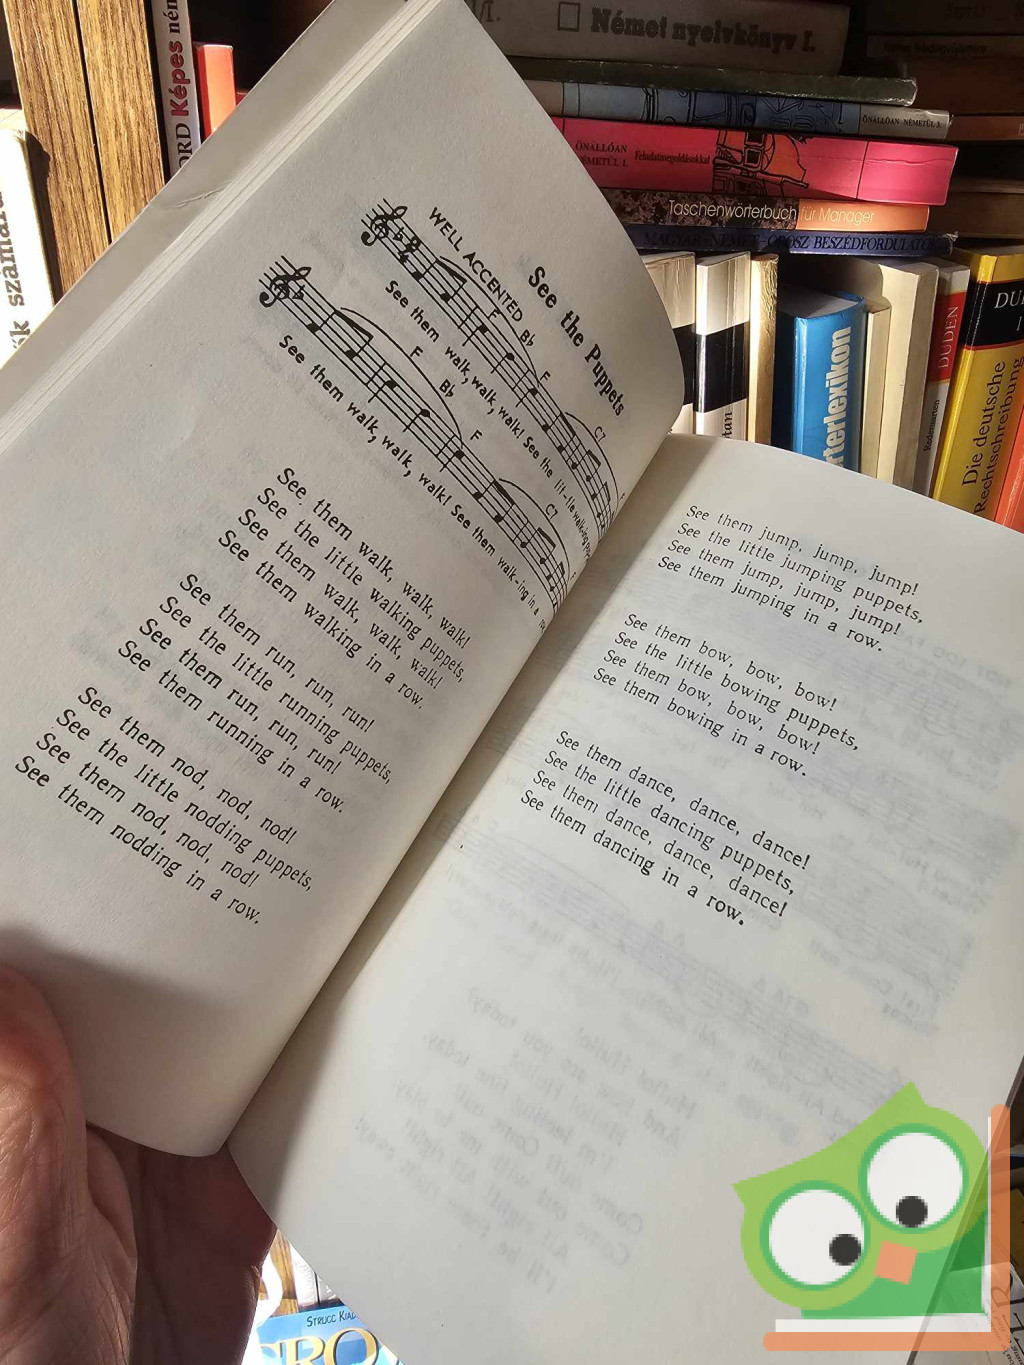 See the Puppets
WELL ACCENTED
F Bb F C7
See them walk, walk, walk! See the lit-tle walk-ing
F Bb F C7
See them walk, walk, walk! See them walk-ing in a row.
See them walk, walk, walk!
See the little walking puppets,
See them walk, walk, walk!
See them walking in a row.
See them run, run, run!
See the little running puppets,
See them run, run, run!
See them running in a row.
See them nod, nod, nod!
See the little nodding puppets,
See them nod, nod, nod!
See them nodding in a row.
See them jump, jump, jump!
See the little jumping puppets,
See them jump, jump, jump!
See them jumping in a row.
See them bow, bow, bow!
See the little bowing puppets,
See them bow, bow, bow!
See them bowing in a row.
See them dance, dance, dance!
See the little dancing puppets,
See them dance, dance, dance!
See them dancing in a row.
Német nyelvkönyv I.
ÖNÁLLÓAN NÉMETÜL 3.
ÖNÁLLÓAN NÉMETÜL 1. Feladatmegoldásokkal
Taschenwörterbuch für Manager
MAGYAR-NÉMET-OROSZ BESZÉDFORDULATOK
Képes
DUDEN
Redensarten
Die deutsche Rechtschreibung
STRUCC